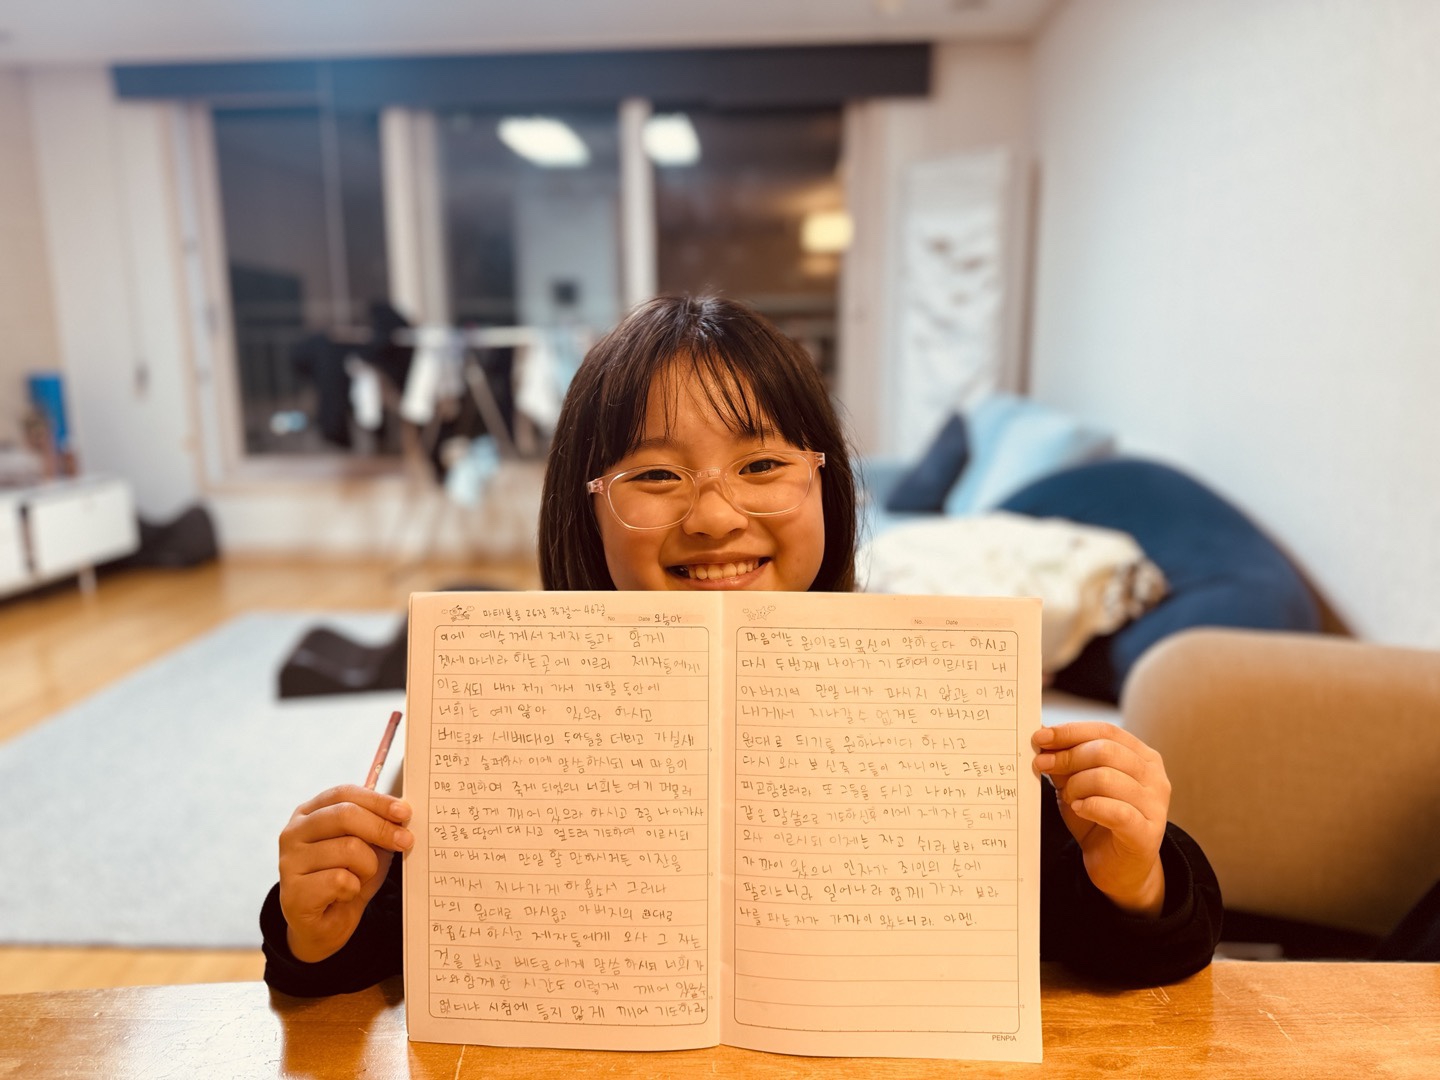 마태복음 26장 36절~46절
No. Date
이에 예수께서 제자들과 함께
겟세마네라 하는 곳에 이르러 제자들에게
이르시되 내가 저기 가서 기도할 동안에
너희는 여기 앉아 있으라 하시고
베드로와 세베대의 두아들을 더리고 가실새
고민하고 슬퍼하사 이에 말씀하시되 내 마음이
매우 고민하여 죽게 되었으니 너희는 여기 머물러
나와 함께 깨어 있으라 하시고 조금 나아가사
얼굴을 땅에 대시고 엎드려 기도하여 이르시되
내 아버지여 만일 할 만하시거든 이잔을
내게서 지나가게 하옵소서 그러나
나의 원대로 마시옵고 아버지의 원대로
하옵소서 하시고 제자들에게 오사 그 자는
것을 보시고 베드로에게 말씀하시되 너희가
나와 함께 한 시간도 이렇게 깨어 있을수
없더냐 시험에 들지 않게 깨어 기도하라
No. Date
마음에는 원이로되 육신이 약하도다 하시고
다시 두번째 나아가 기도하여 이르시되 내
아버지여 만일 내가 마시지 않고는 이 잔이
내게서 지나갈수 없거든 아버지의
원대로 되기를 원하나이다 하시고
다시 오사 보신즉 그들이 자니 이는 그들의 눈이
피곤함일러라 또 그들을 두시고 나아가 세번째
같은 말씀으로 기도하신후 이에 제자들에게
오사 이르시되 이제는 자고 쉬라 보라 때가
가까이 왔으니 인자가 죄인의 손에
팔리느니라 일어나라 함께 가자 보라
나를 파는자가 가까이 왔느니라. 아멘.
PENPIA